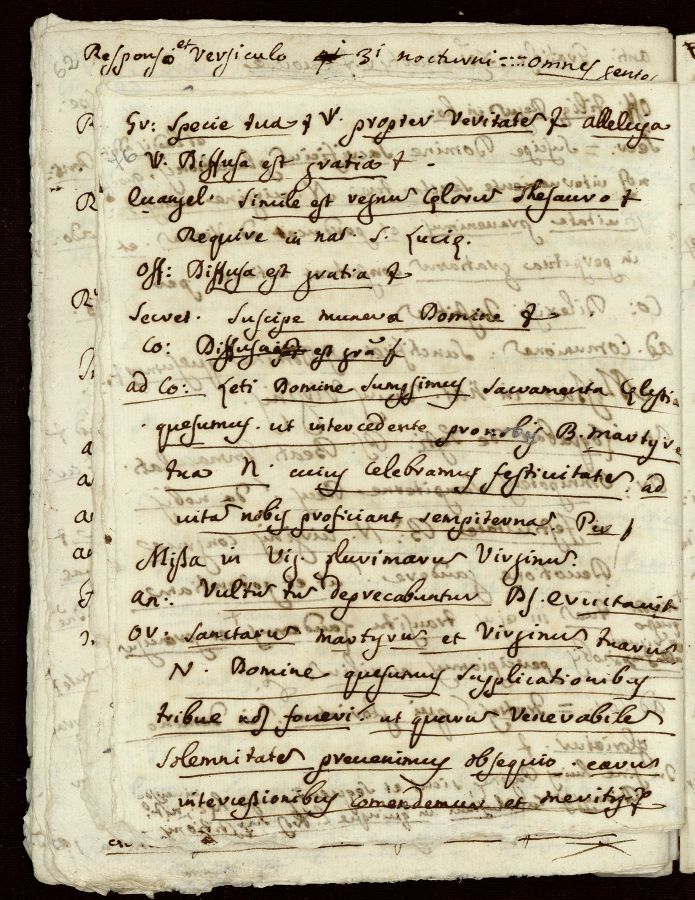 62 Responso et Versiculo 3i nocturni :::: omnes gentes
76
Gr: Specie tua & V. propter Veritatē & alleluya
V. Diffusa est gratia &
Euangel. Simile est regnū Celorū Thesauro &
Require in nat. S. Lucie.
Off: Diffusa est gratia &
Secret. Suscipe munera Domine &
Co: Diffusa est est gra &
ad Co: Leti Domine Sumpsimus Sacramenta Celestia
quesumus. ut intercedente pro nobis B. martyre
tua N. cuius Celebramus festiuitatē. ad
uitā nobis proficiant sempiternā. Per
Missa in Vig. plurimarū Virginū.
an: Vultū tuū deprecabuntur Ps. eructauit
Or: Sanctarū martyrū et Virginū tuarū
N. Domine quesumus supplicationibus
tribue nos foueri. ut quarū Venerabilē
Solemnitatē preuenimus obsequio. earū
intercessionibus comendemur et meritis. P